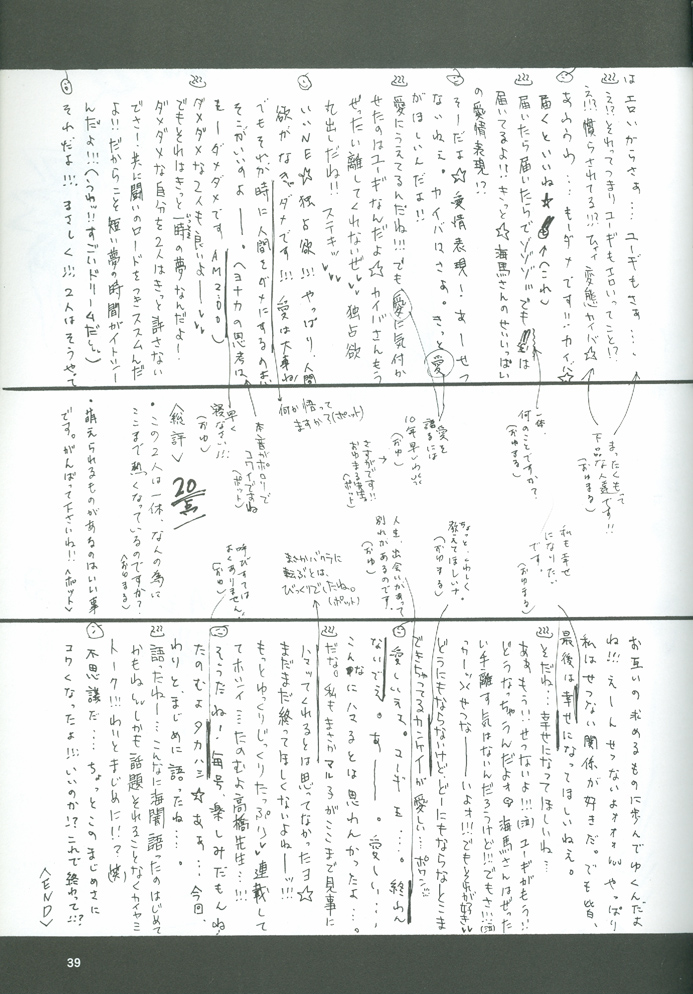 はエロいからさぁ…ユーギもさぁ…、
え!?それってつまりユーギもエロいってこと!?
え!?慣らされてる!?!?ひィィ変態カイバ☆
あわわわ…もーダメです!!カイバ☆
届くといいね☆
届いたら届いたらで
届いてるよ!!きっと☆海馬さんのせいいっぱい
の愛情表現!?
そーだよ☆愛情表現!あーせつ
ないねぇ。カイバはさぁ。きっと愛
がほしいんだよ!!
愛にうえてるんだね!!!でも愛に気付か
せたのはユーギなんだよ☆カイバさんもう
ぜったい離してくれないぜ♥♥独占欲
丸出しだね!!ステキ♥♥
いいNE☆独占欲!!!やっぱり人間
欲がなきゃダメです!!!愛は大事ね
でもそれが時に人間をダメにするのよ。
そこがいいのよー。ヘヨナカの思考は
もーダメダメです AM2:00)
ダメダメな2人も良いよー♥♥
でもそれはきっと一時の夢なんだよー!
ダメダメな自分を2人はきっと許さない
でさ!共に闘いのロードをつきススムんだ
よ!!だからこそ短い夢の時間がイトシー
んだよ!!!(うわッ!!すごいドリームだヒ〜)
それだよ!!!まさしく!!!2人はそうやって
まったくもって
下品な人達です!!
(おゆまる)
一体、
何のことですか?
(おゆまる)
愛を
語るには
10年早いわッ
(おゆ)
さすがです!!
おゆまる先生
(ポット)
何か悟って
ますかね(ポット)
本音がポロリで
コワイですね
(ポット)
早く
寝なさい!!!
(おゆ)
<総評>
20点
・この2人は一体、なんの為に
ここまで熱くなっているのですか?
<おゆまる>
・萌えられるものがあるのはいい事
です。がんばって下さいね!!<ポット>
私も幸せ
になりたい
です。
(おゆまる)
ちょっと、くわしく
教えてほしいナ。
(おゆまる)
人生、出会いがあって
別れがあるのです。
(おゆ)
まさかバクラに
転ぶとは、
びっくりでしたね。
(ポット)
呼びすては
よくありません。
(おゆ)
お互いの求めるものに歩んでゆくんだよ
ね!!!えーんせつないよォォォ〜やっぱり
私はせつない関係が好きだ。でも皆、
最後は幸せになってほしいねぇ。
そだね…幸せになってほしいね…
ああもう!!せつないよ!!!(泣)ユーギがもう!!
どうなっちゃうんだよォ海馬さんはぜった
い手離す気はないんだろうけど!!でもさ!!!(泣)
っかーッせつなーーいよォ!!!でもそれが好き♥
どうにもならないけどどーにもならなとこま
できちゃってるカンケイが愛しい…ポワン
愛しいえる。ユーギを…。終わん
ないでぇ。あー。愛しい…
こんなにハマるとは思わんかったよ…。
だな。私もまさかマル3がここまで見事に
ハマッてくれるとは思ってなかったヨ☆
まだまだ終ってほしくないよねーッ!!!
もっとゆっくりじっくりたっぷり♥連載して
てホシイ…たのむよ高橋先生…!!!
そうだね!毎号、楽しみだもんね!
たのむよタカハシ☆あぁ…今回、
わりと、まじめに語ったね…。
語ったねー…こんなに海闇語ったのはじめて
かもね〜しかも話題それることなくカイヤミ
トーク!!!わいとまじめに!!?(笑)
不思議だ…ちょっとこのまじめさに
コワくなったよ!!!いいのか!?これで終わって!!?
<END>
39